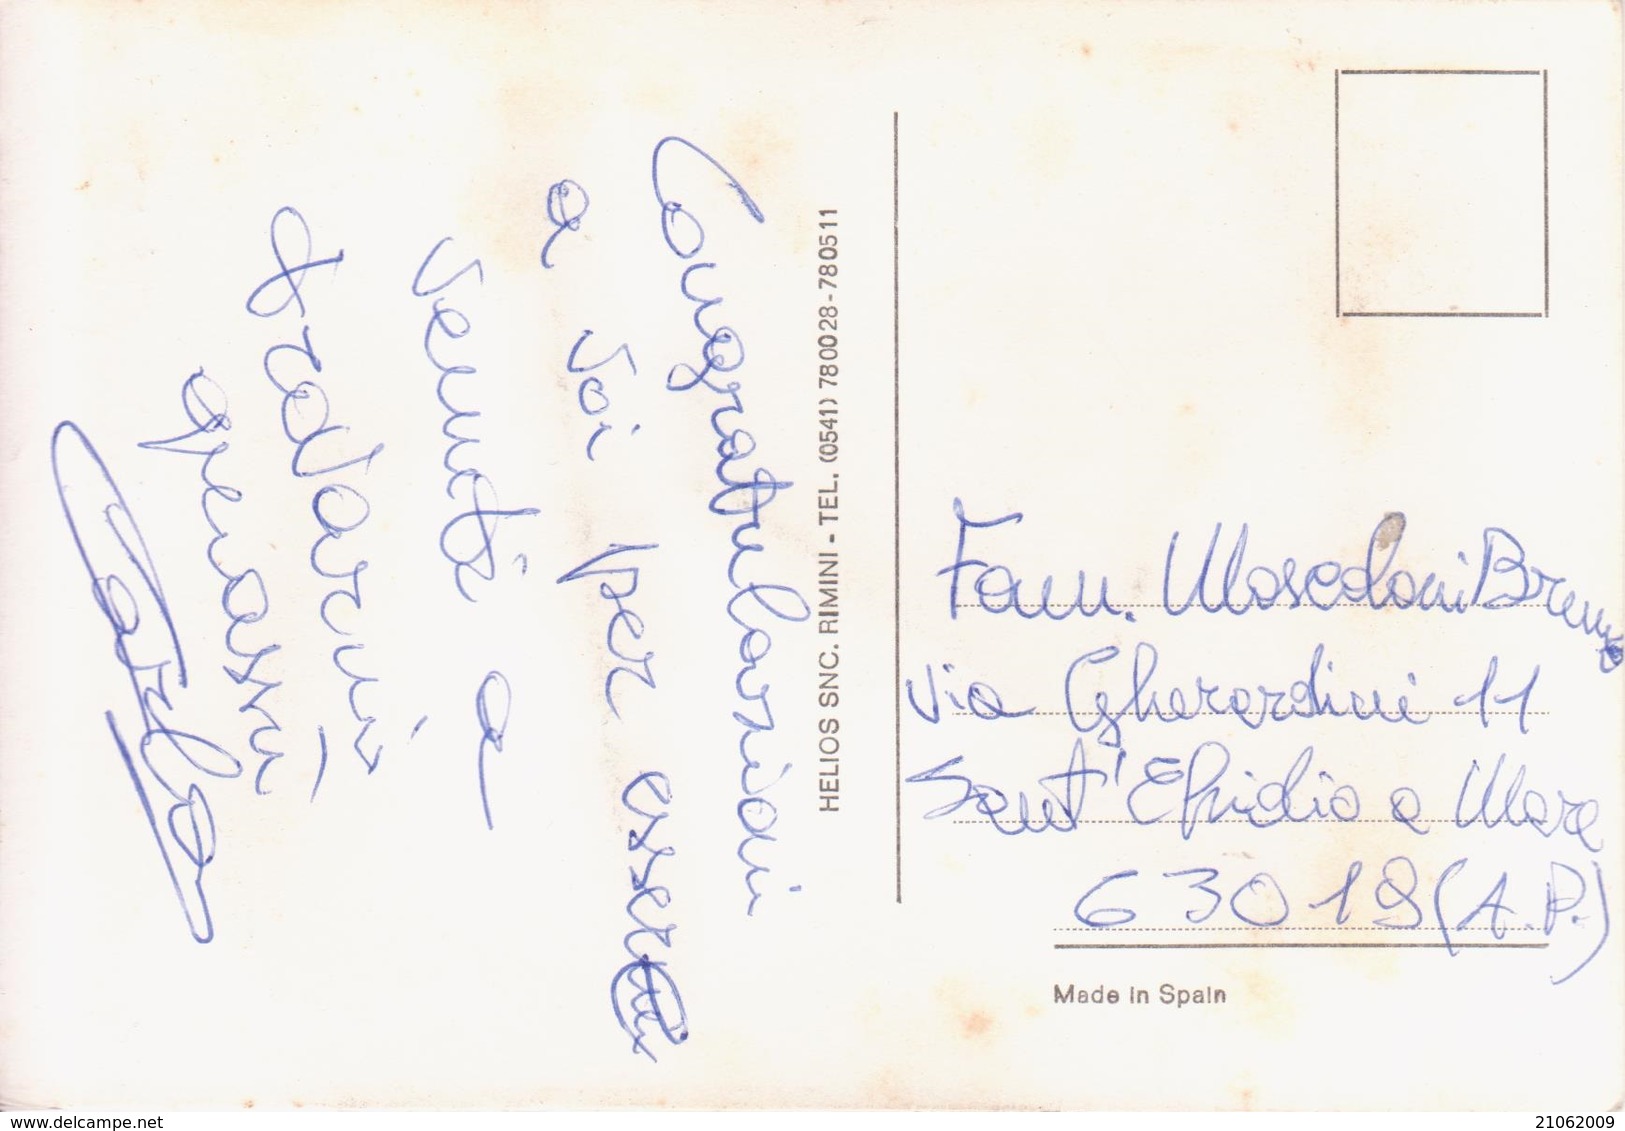 Congratulazioni
a voi per essere
venuti a
trovarmi,
Carlo
HELIOS SNC. RIMINI - TEL. (0541) 780028-780511
Fam. Moscoloni Bruno
Via Gherardini 11
Sant'Elpidio a Mare
63019 (A.P.)
Made in Spain
www.delcampe.net
21062009